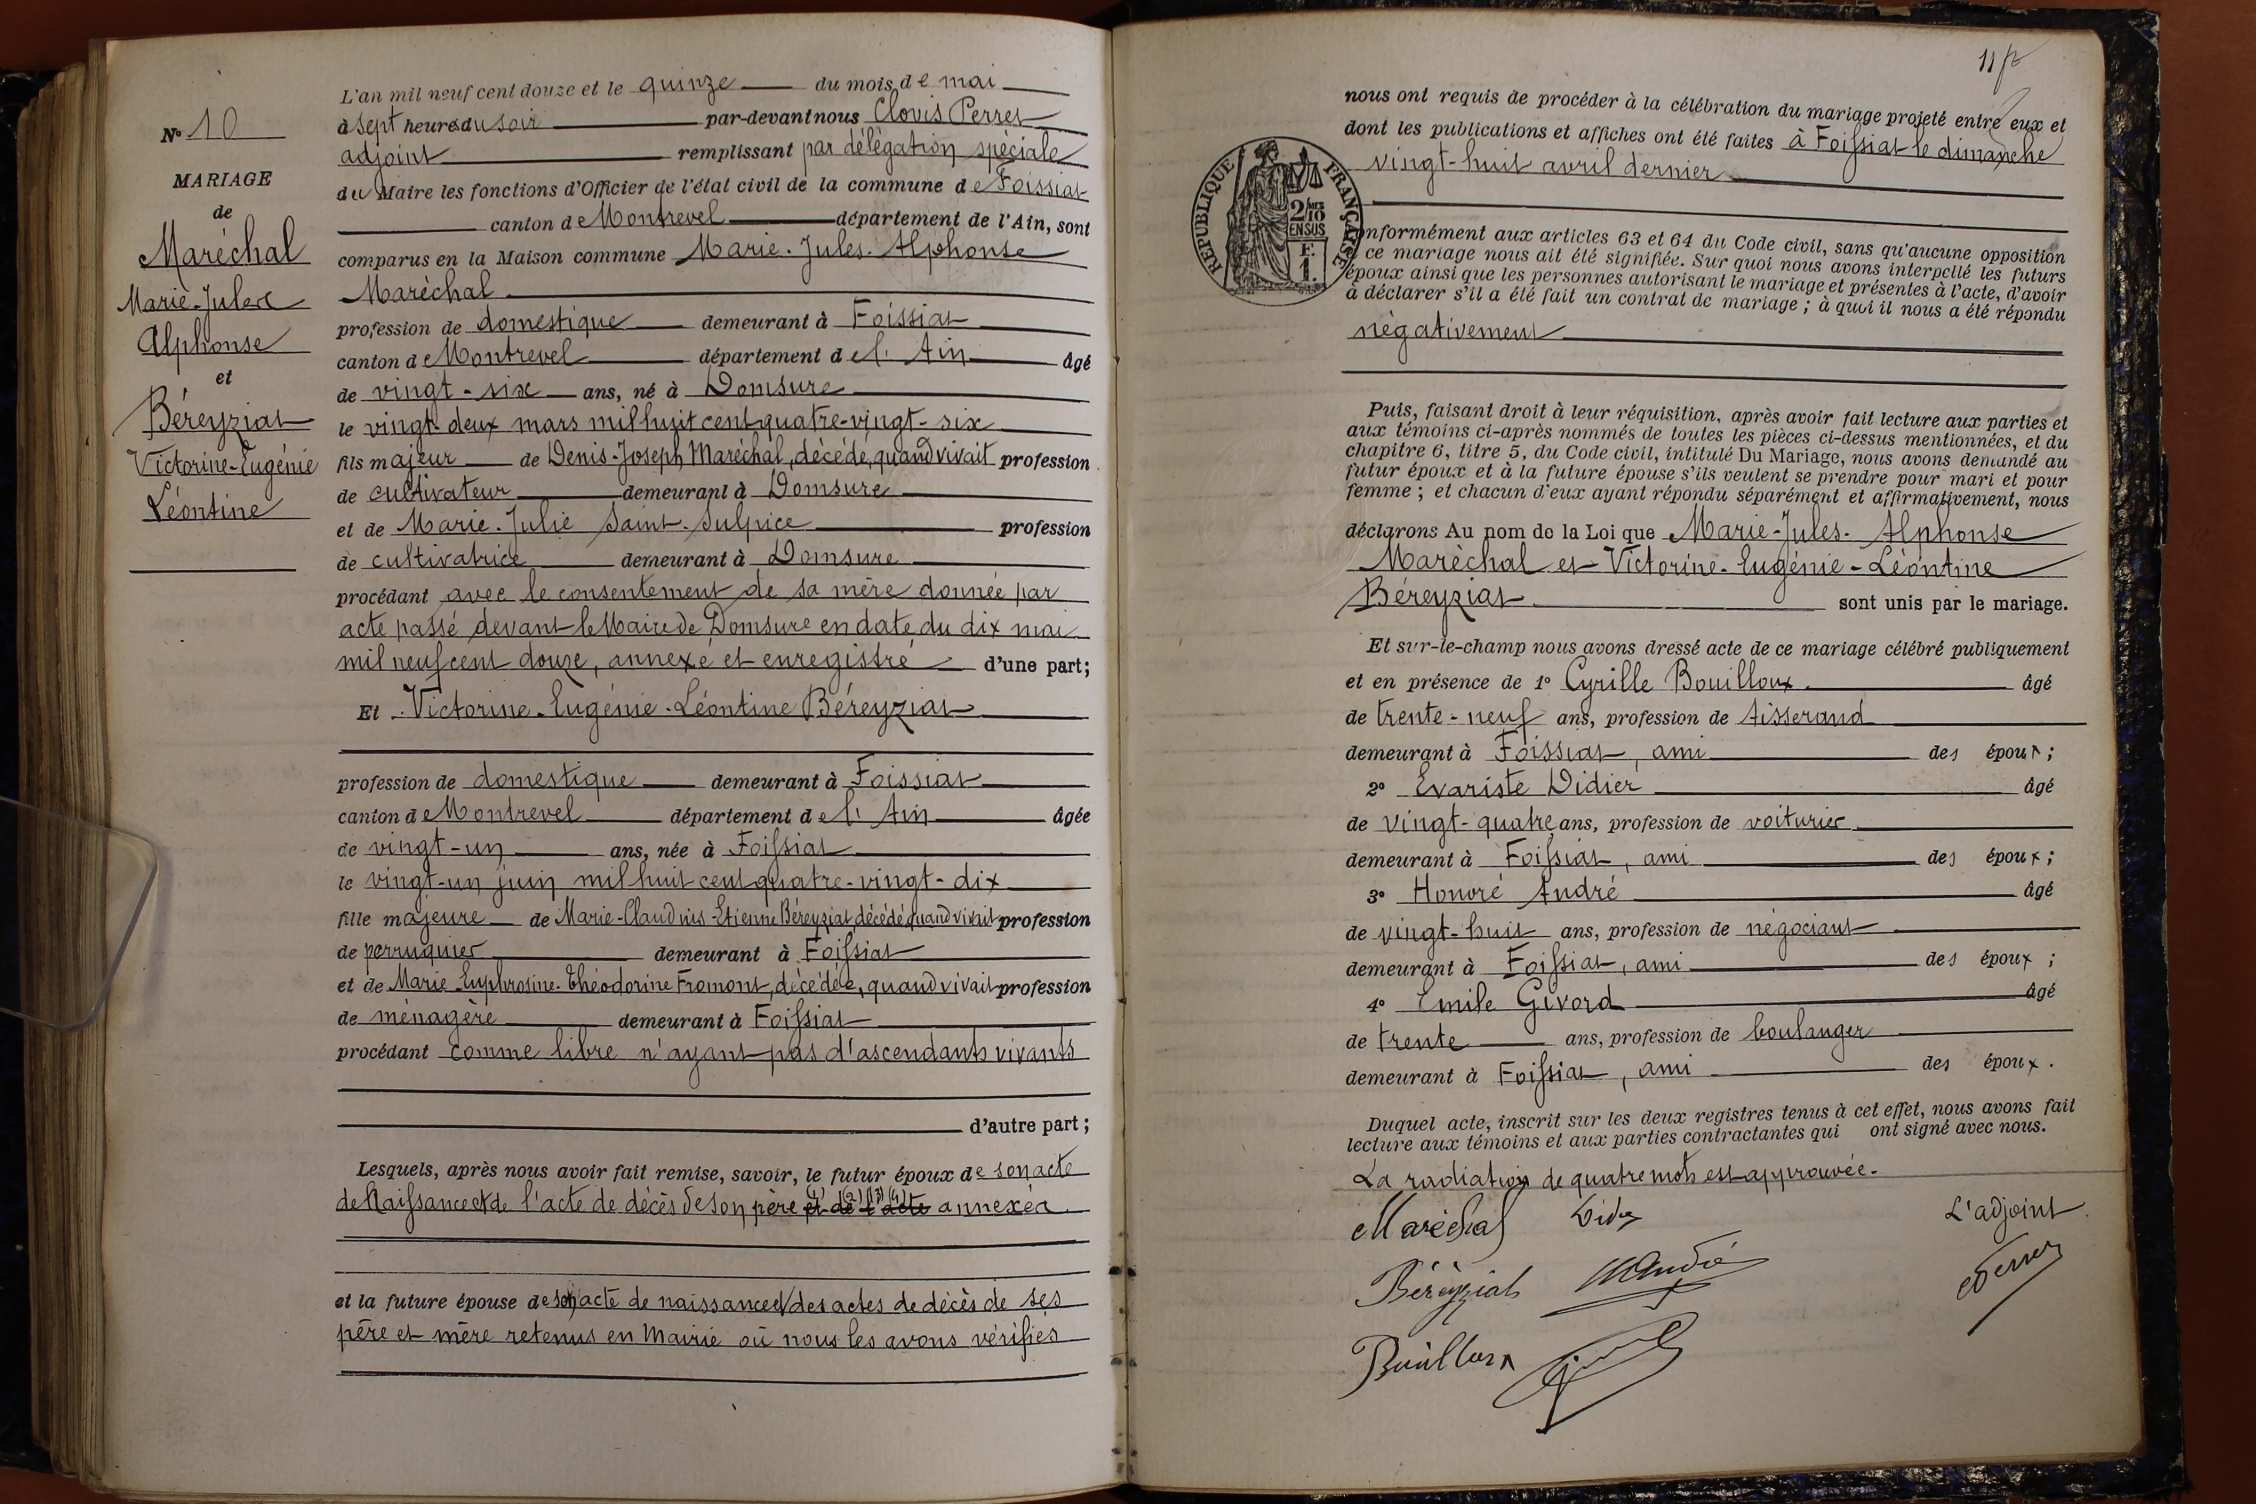 N° 10
MARIAGE
de
Maréchal
Marie-Jules
Alphonse
et
Béreyziat
Victorine-Eugénie
Léontine
L'an mil neuf cent douze et le quinze du mois de mai
à sept heures du soir par-devant nous Clovis Perret
adjoint remplissant par délégation spéciale
du Maire les fonctions d'Officier de l'état civil de la commune de Foissiat
canton de Montrevel département de l'Ain, sont
comparus en la Maison commune Marie-Jules-Alphonse
Maréchal
profession de domestique demeurant à Foissiat
canton de Montrevel département de l'Ain âgé
de vingt-six ans, né à Domsure
le vingt-deux mars mil huit cent quatre-vingt-six
fils majeur de Denis-Joseph Maréchal, décédé, quand vivait profession
de cultivateur demeurant à Domsure
et de Marie-Julie Saint-Sulpice profession
de cultivatrice demeurant à Domsure
procédant avec le consentement de sa mère donnée par
acte passé devant le Maire de Domsure en date du dix mai
mil neuf cent douze, annexé et enregistré d'une part;
Et Victorine-Eugénie-Léontine Béreyziat
profession de domestique demeurant à Foissiat
canton de Montrevel département de l'Ain âgée
de vingt-un ans, née à Foissiat
le vingt-un juin mil huit cent quatre-vingt-dix
fille majeure de Marie-Claudius-Etienne Béreyziat, décédé quand vivait profession
de perruquier demeurant à Foissiat
et de Marie-Euphrosine-Théodorine Fromont, décédée, quand vivait profession
de ménagère demeurant à Foissiat
procédant comme libre n'ayant pas d'ascendants vivants
d'autre part;
Lesquels, après nous avoir fait remise, savoir, le futur époux de son acte
de Naissance et de l'acte de décès de son père et (1) de (2) l' (3) acte (4) annexés
et la future épouse de son acte de naissance et des actes de décès de ses
père et mère retenus en Mairie où nous les avons vérifiés
nous ont requis de procéder à la célébration du mariage projeté entre eux et
dont les publications et affiches ont été faites à Foissiat le dimanche
vingt-huit avril dernier
RÉPUBLIQUE FRANÇAISE
2/10
EN SUS
F.
1.
conformément aux articles 63 et 64 du Code civil, sans qu'aucune opposition
à ce mariage nous ait été signifiée. Sur quoi nous avons interpellé les futurs
époux ainsi que les personnes autorisant le mariage et présentes à l'acte, d'avoir
à déclarer s'il a été fait un contrat de mariage; à quoi il nous a été répondu
négativement
Puis, faisant droit à leur réquisition, après avoir fait lecture aux parties et
aux témoins ci-après nommés de toutes les pièces ci-dessus mentionnées, et du
chapitre 6, titre 5, du Code civil, intitulé Du Mariage, nous avons demandé au
futur époux et à la future épouse s'ils veulent se prendre pour mari et pour
femme; et chacun d'eux ayant répondu séparément et affirmativement, nous
déclarons Au nom de la Loi que Marie-Jules-Alphonse
Maréchal et Victorine-Eugénie-Léontine
Béreyziat sont unis par le mariage.
Et sur-le-champ nous avons dressé acte de ce mariage célébré publiquement
et en présence de 1° Cyrille Bouilloux âgé
de trente-neuf ans, profession de tisserand
demeurant à Foissiat, ami des époux;
2° Evariste Didier âgé
de vingt-quatre ans, profession de voiturier
demeurant à Foissiat, ami des époux;
3° Honoré André âgé
de vingt-huit ans, profession de négociant
demeurant à Foissiat, ami des époux;
4° Emile Givord âgé
de trente ans, profession de boulanger
demeurant à Foissiat, ami des époux.
Duquel acte, inscrit sur les deux registres tenus à cet effet, nous avons fait
lecture aux témoins et aux parties contractantes qui ont signé avec nous.
La radiation de quatre mots est approuvée.
Maréchal Didier L'adjoint
Béréyziat H André CPerret
Bouilloux